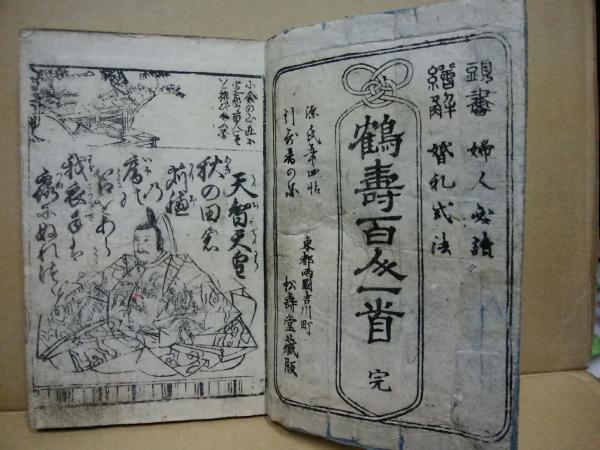 頭書 婦人必讀
繪解 婚礼式法
鶴壽百人一首 完
源氏五十四帖
引哥香の圖
東都両國吉川町
松壽堂藏版
天智天皇
秋の田の
かりほ
の
庵の
苫をあらみ
我衣手は
露にぬれつゝ